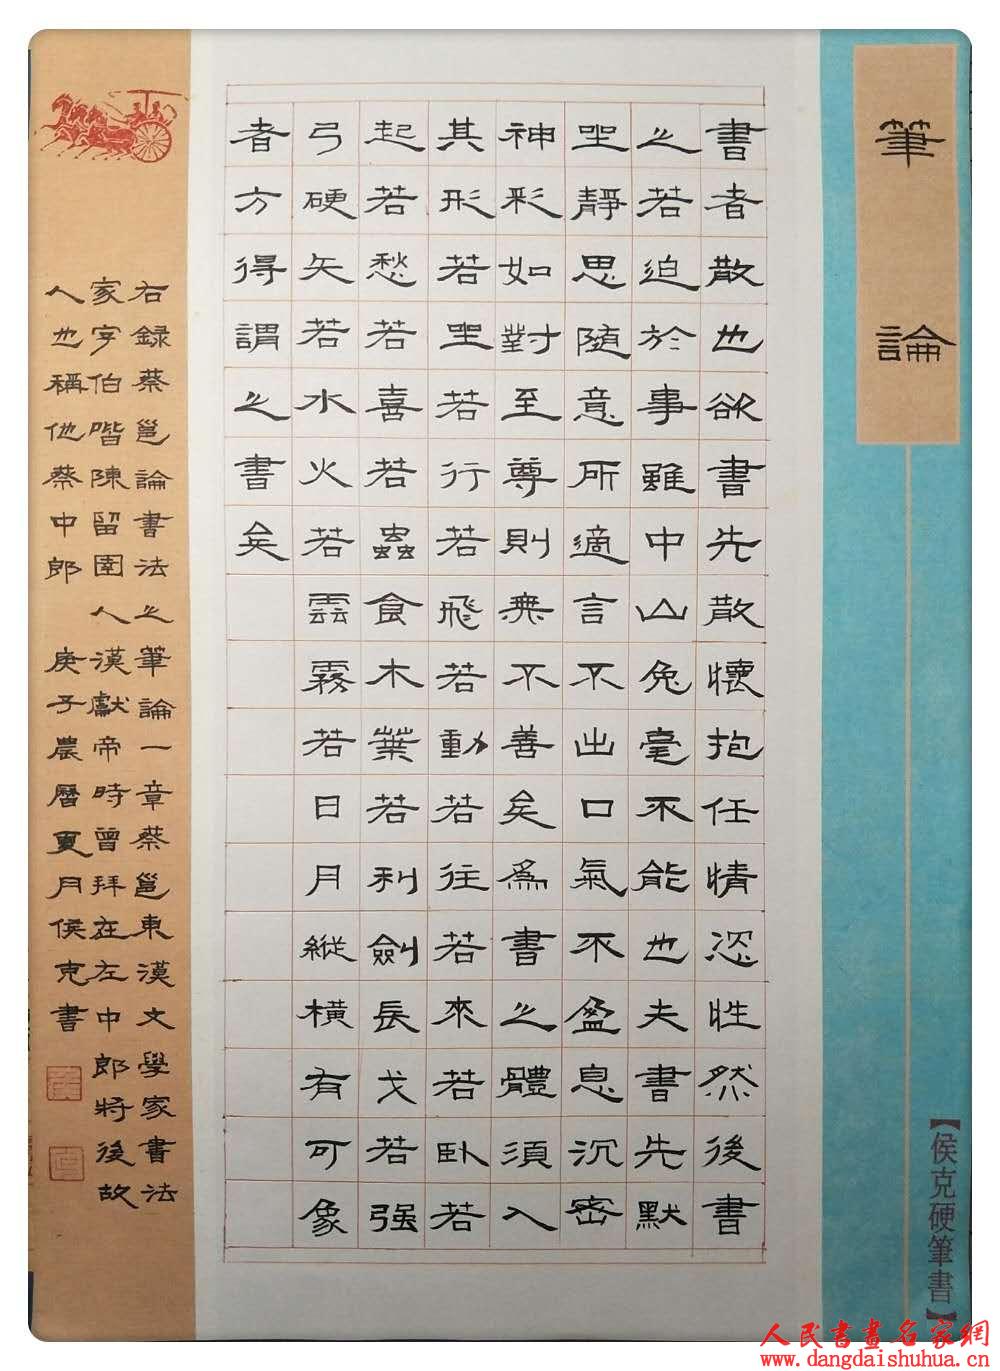 筆論
書者散也欲書先散懷抱任情恣性然後書
之若迫於事雖中山兔毫不能也夫書先默
坐靜思隨意所適言不出口氣不盈息沉密
神彩如對至尊則無不善矣為書之體須入
其形若坐若行若飛若動若往若來若臥若
起若愁若喜若蟲食木葉若利劍長戈若强
弓硬矢若水火若雲霧若日月縱橫有可象
者方得謂之書矣
右録蔡邕論書法之筆論一章蔡邕東漢文學家書法
家字伯喈陳留圉人漢獻帝時曾拜在左中郎將後故
人也稱他蔡中郎 庚子農曆夏月侯克書
【侯克硬筆書】
人民書畫名家網
www.dangdaishuhua.cn